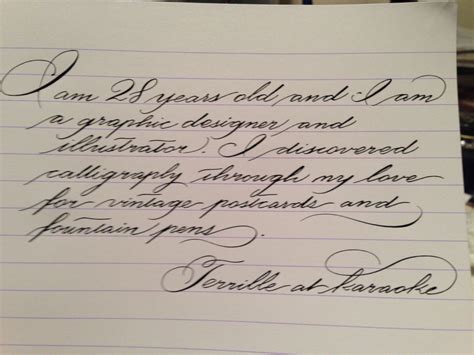 I am 28 years old, and I am
a graphic designer and
illustrator. I discovered
calligraphy through my love
for vintage postcards and
fountain pens.
Terrille at karaoke